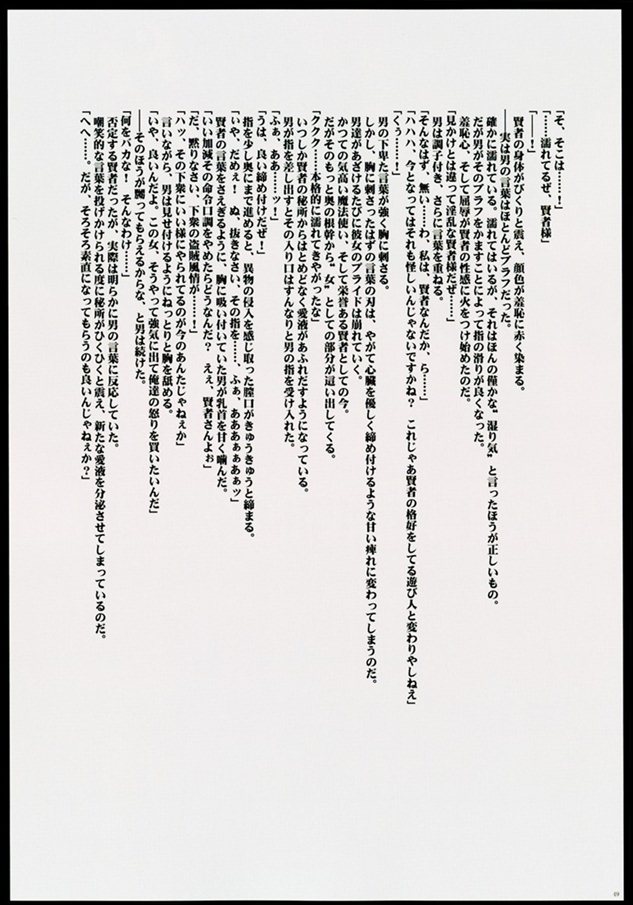 「そ、そこは……！」
「……濡れてるぜ、賢者様」
「――！」
賢者の身体がびくりと震え、顔色が羞恥に赤く染まる。
――実は男の言葉はほとんどブラフだった。
確かに濡れている。濡れてはいるが、それはほんの僅かな〝湿り気〟と言ったほうが正しいもの。
だが男がそのブラフをかますことによって指の滑りが良くなった。
羞恥心、そして屈辱が賢者の性感に火をつけ始めたのだ。
「見かけとは違って淫乱な賢者様だぜ……」
男は調子付き、さらに言葉を重ねる。
「そんなはず、無い……わ、私は、賢者なんだか、ら……」
「ハハハ、今となってはそれも怪しいんじゃないですかね？　これじゃあ賢者の格好をしてる遊び人と変わりやしねえ」
「くぅ……！」
男の下卑た言葉が強く胸に刺さる。
しかし、胸に刺さったはずの言葉の刃は、やがて心臓を優しく締め付けるような甘い痺れに変わってしまうのだ。
男達があざけるたびに彼女のプライドは崩れていく。
かつての気高い魔法使い、そして栄誉ある賢者としての今。
だがそのもっと奥の根幹から〝女〟としての部分が這い出してくる。
「ククク……本格的に濡れてきやがったな」
いつしか賢者の秘所からはとめどなく愛液があふれだすようになっている。
男が指を差し出すとその入り口はすんなりと男の指を受け入れた。
「ふぁ、ああ……ッ！」
「うは、良い締め付けだぜ！」
指を少し奥にまで進めると、異物の侵入を感じ取った膣口がきゅうきゅうと締まる。
「いや、だめぇ！　ぬ、抜きなさい、その指を……、ふぁ、あああぁあぁッ」
賢者の言葉をさえぎるように、胸に吸い付いていた男が乳首を甘く噛んだ。
「いい加減その命令口調をやめたらどうなんだ？　えぇ、賢者さんよぉ」
「だ、黙りなさい、下衆の盗賊風情が……！」
「ハッ、その下衆にいい様にやられてるのが今のあんたじゃねぇか」
言いながら、男は見せ付けるようにねっとりと胸を舐める。
「いや、良いんだよ。この女、そうやって強気に出て俺達の怒りを買いたいんだ」
――そのほうが嬲ってもらえるからな、と男は続けた。
「何をバカな……、そんなわけ……」
否定する賢者だったが、実際は明らかに男の言葉に反応していた。
嘲笑的な言葉を投げかけられる度に秘所がひくひくと震え、新たな愛液を分泌させてしまっているのだ。
「へへ……。だが、そろそろ素直になってもらうのも良いんじゃねぇか？」
49